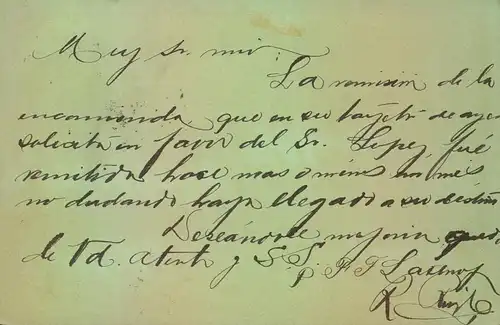 Muy Sr. mio:
La remision de la
encomienda que en su tarjeta de ayer
solicita en favor del Sr. Lopez, fué
remitida hace mas o menos un mes
no dudando haya llegado a su destino
Deseándole mejoria quedo
de Vd. atento y S. S.